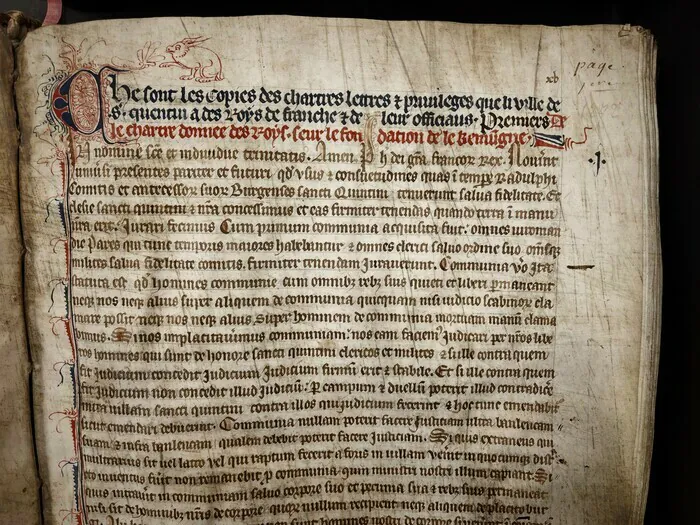 xv
page
Che sont les copies des chartres lettres & privileges que li ville de
s. quentin a des Roys de franche & de leur officiaus. Premiers
le chartre donnee des Roys. seur le fon dation de le kemugne.
.j.
In nomine sce et individue trinitatis. Amen. Ph dei gra francor Rex. Noverint
universi presentes pariter et futuri qd usus & consuetudines quas i tempe Radulphi
Comitis et antecessor suor Burgenses sancti Quintini tenuerunt salva fidelitate. Et
clesie sancti quintini & nra concessimus et eas firmiter tenendas quando terra i manu
nra erit. Jurari fecimus Cum primum communia acquisita fuit. omnes viroman
die Pares qui tunc temporis maiores habebantur & omnes clerici salvo ordine suo. omsq
milites salva fidelitate comitis. firmiter tenendam Juraverunt. Communia vo Ita
statuta est qd homines communie cum omnibz rebz suis quieti et liberi pmaneant
neqz nos neqz alius super aliquem de communia quicquam nisi iudicio scabinor cla
mare possit neqz nos neqz alius Super hominem de communia mortuam manu clama
bimus. Si nos implacitavimus communiam. nos eam faciem Judicari per nros libe
ros homines qui sunt de honore sancti quintini clericos et milites & si ille contra quem
fit Judicium concedit Judicium Judicium firmu erit & stabile. Et si ille contra quem
fit Judicium non concedit illud Judiciu. p campum & duellu poterit illud contradice
infra villam sancti quintini contra illos qui iudicium fecerint & hoc tunc emendabit
sicut emendari debuerit. Communia nullam poterit facere Justiciam ultra banleucam
suam & infra banleucam qualem debebit poterit facere Justiciam. Si quis extraneus qui
multrarius sit vel latro vel qui raptum fecerit a foris in villam venit in quocumqz
pto inventus fuit non remanebit p communia quin ministri nostri illum capiant. Si
quis intravit in communiam salvo corpore suo et pecunia sua & rebz suis permaneat